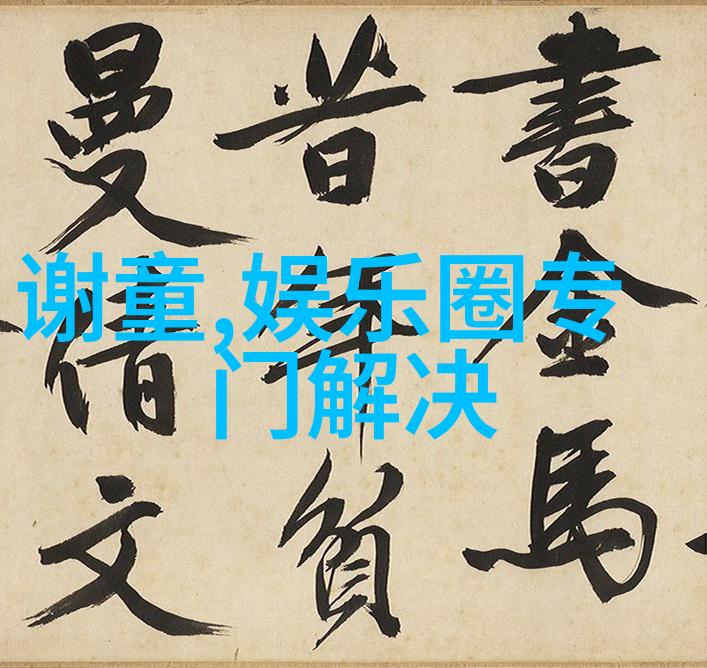 書金馬
昔年貧
曼倩文
谢童,娱乐圈专
门解决